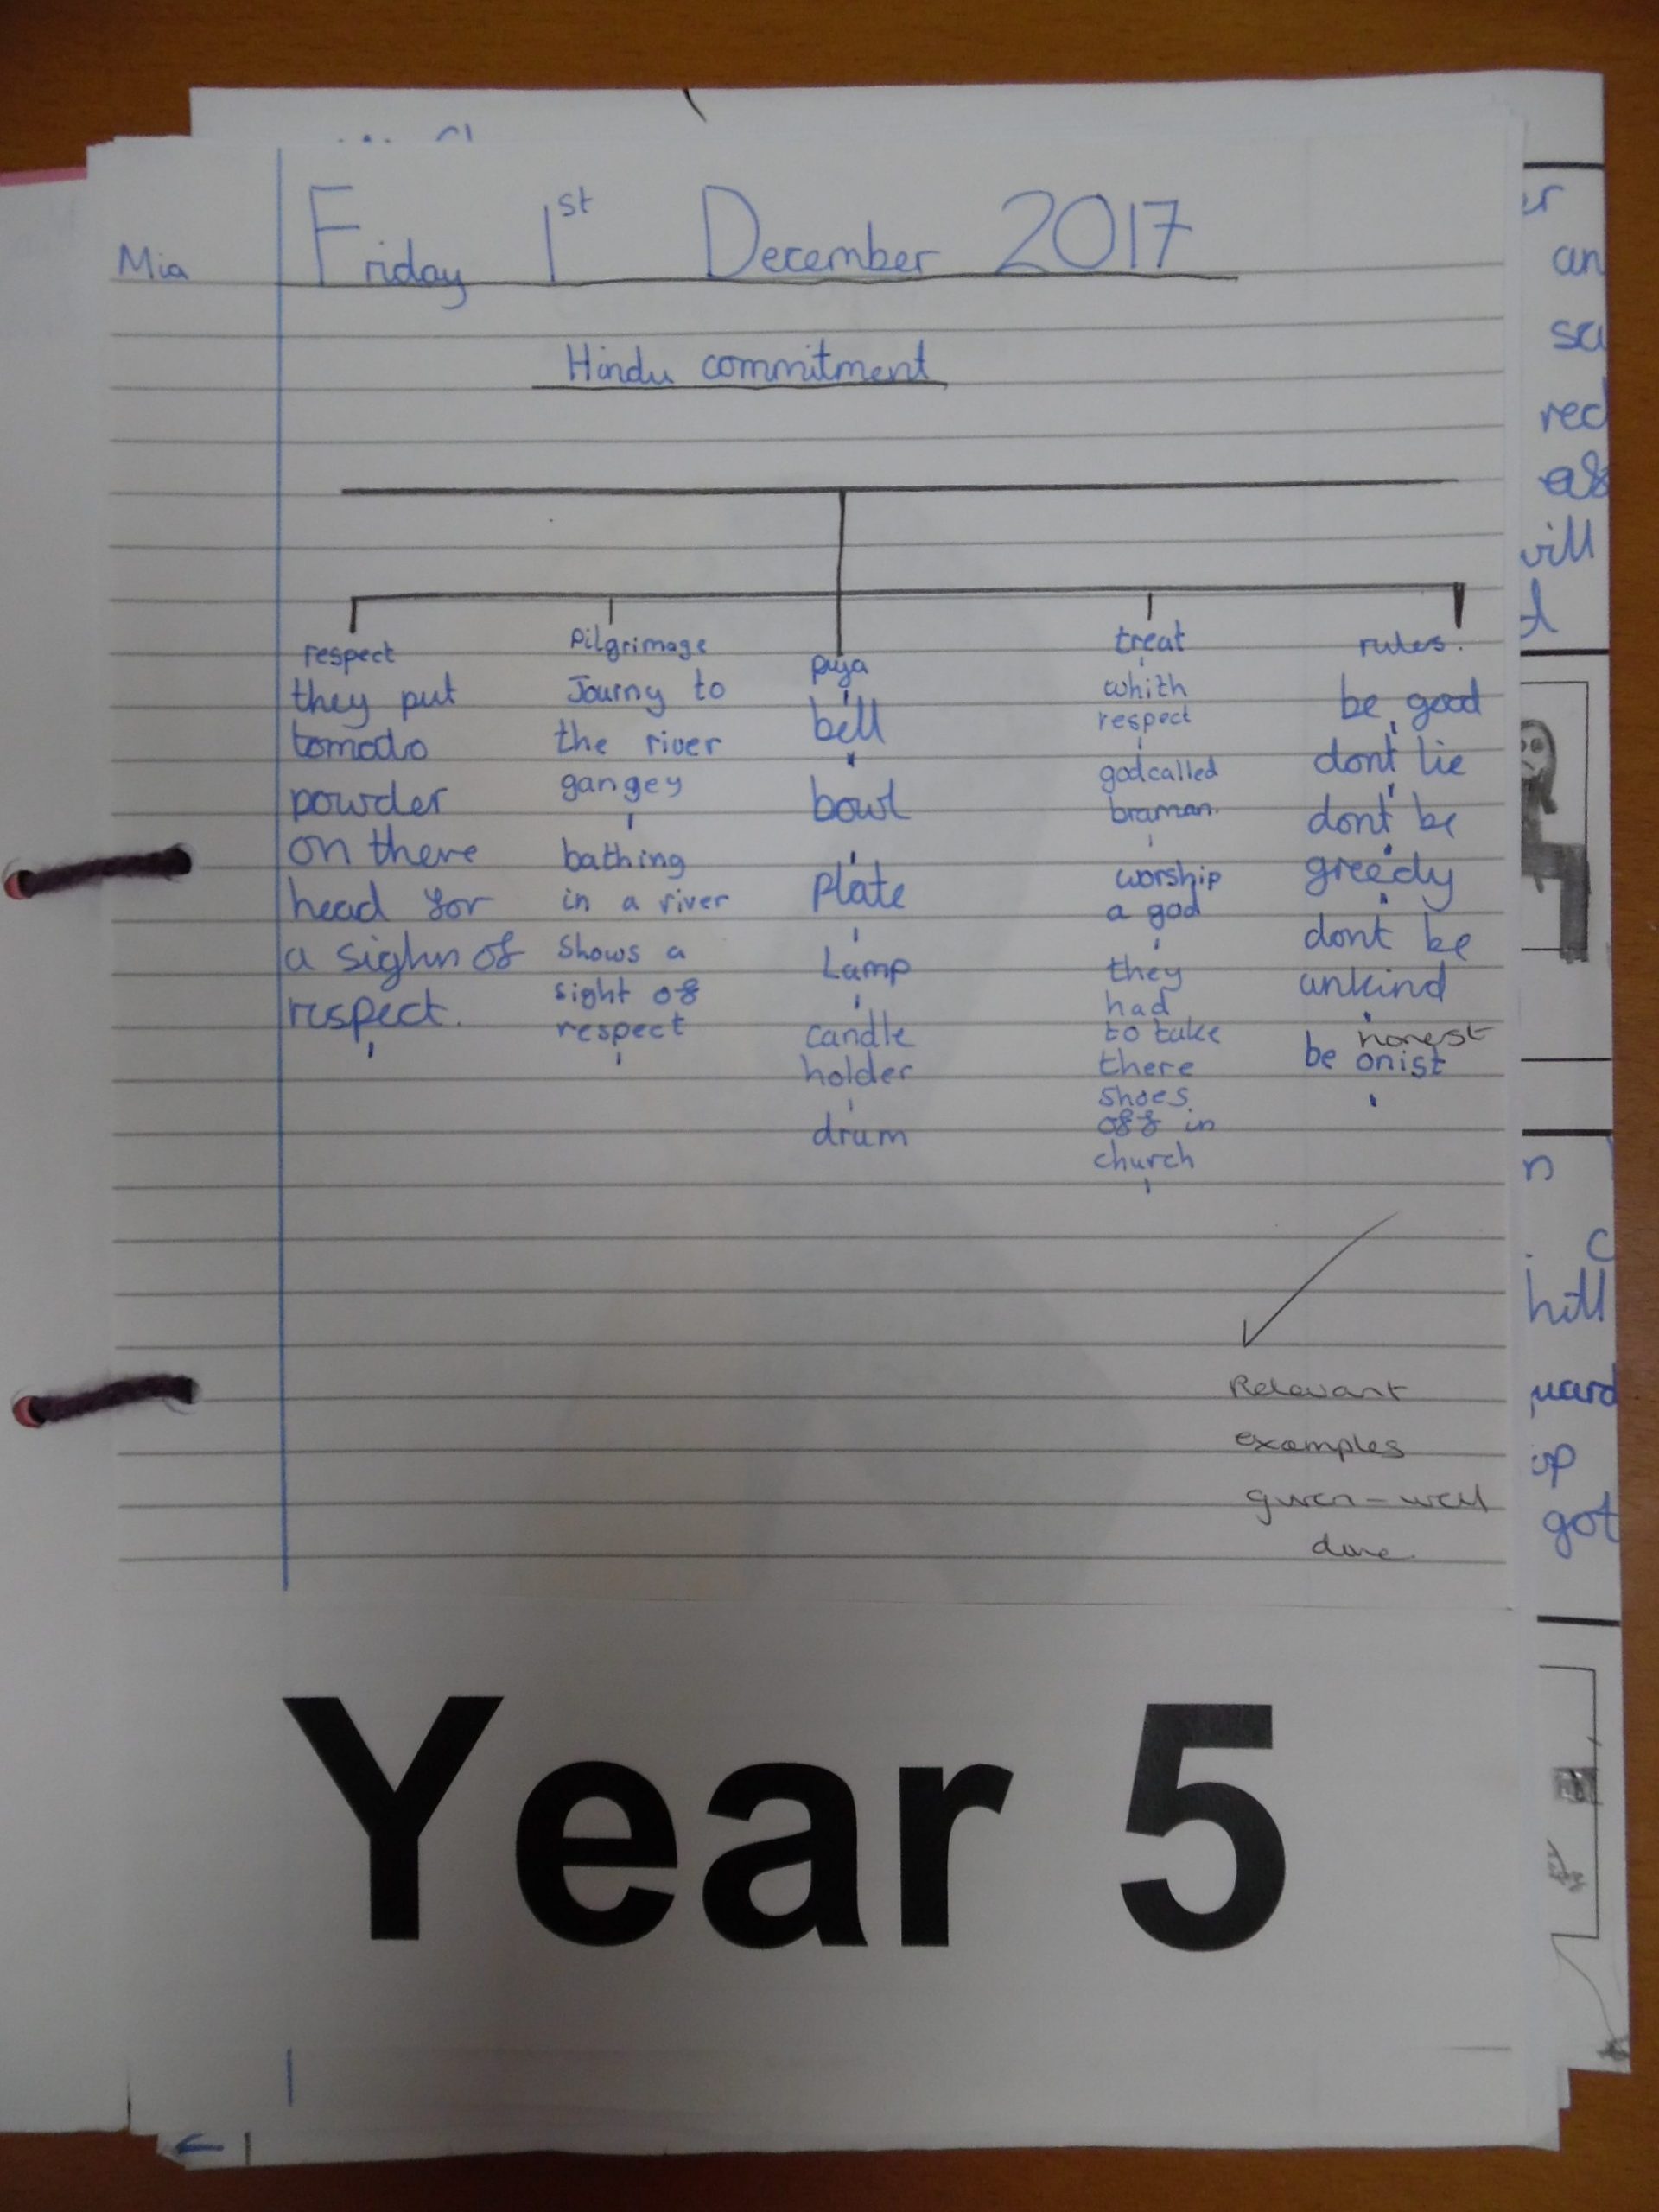 Mia
Friday 1st December 2017
Hindu commitment
respect
they put
tomodo
powder
on there
head for
a sighn of
respect.
Pilgrimage
Journy to
the river
gangey
bathing
in a river
Shows a
sight of
respect
puja
bell
bowl
plate
Lamp
candle
holder
drum
treat
whith
respect
god called
braman.
worship
a god
they
had
to take
there
shoes
off in
church
rules.
be good
dont lie
dont be
greedy
dont be
unkind
honest
be onist
Relevant
examples
given - well
done.
Year 5
er
an
sa
red
will
d
n
c
hill
up
got